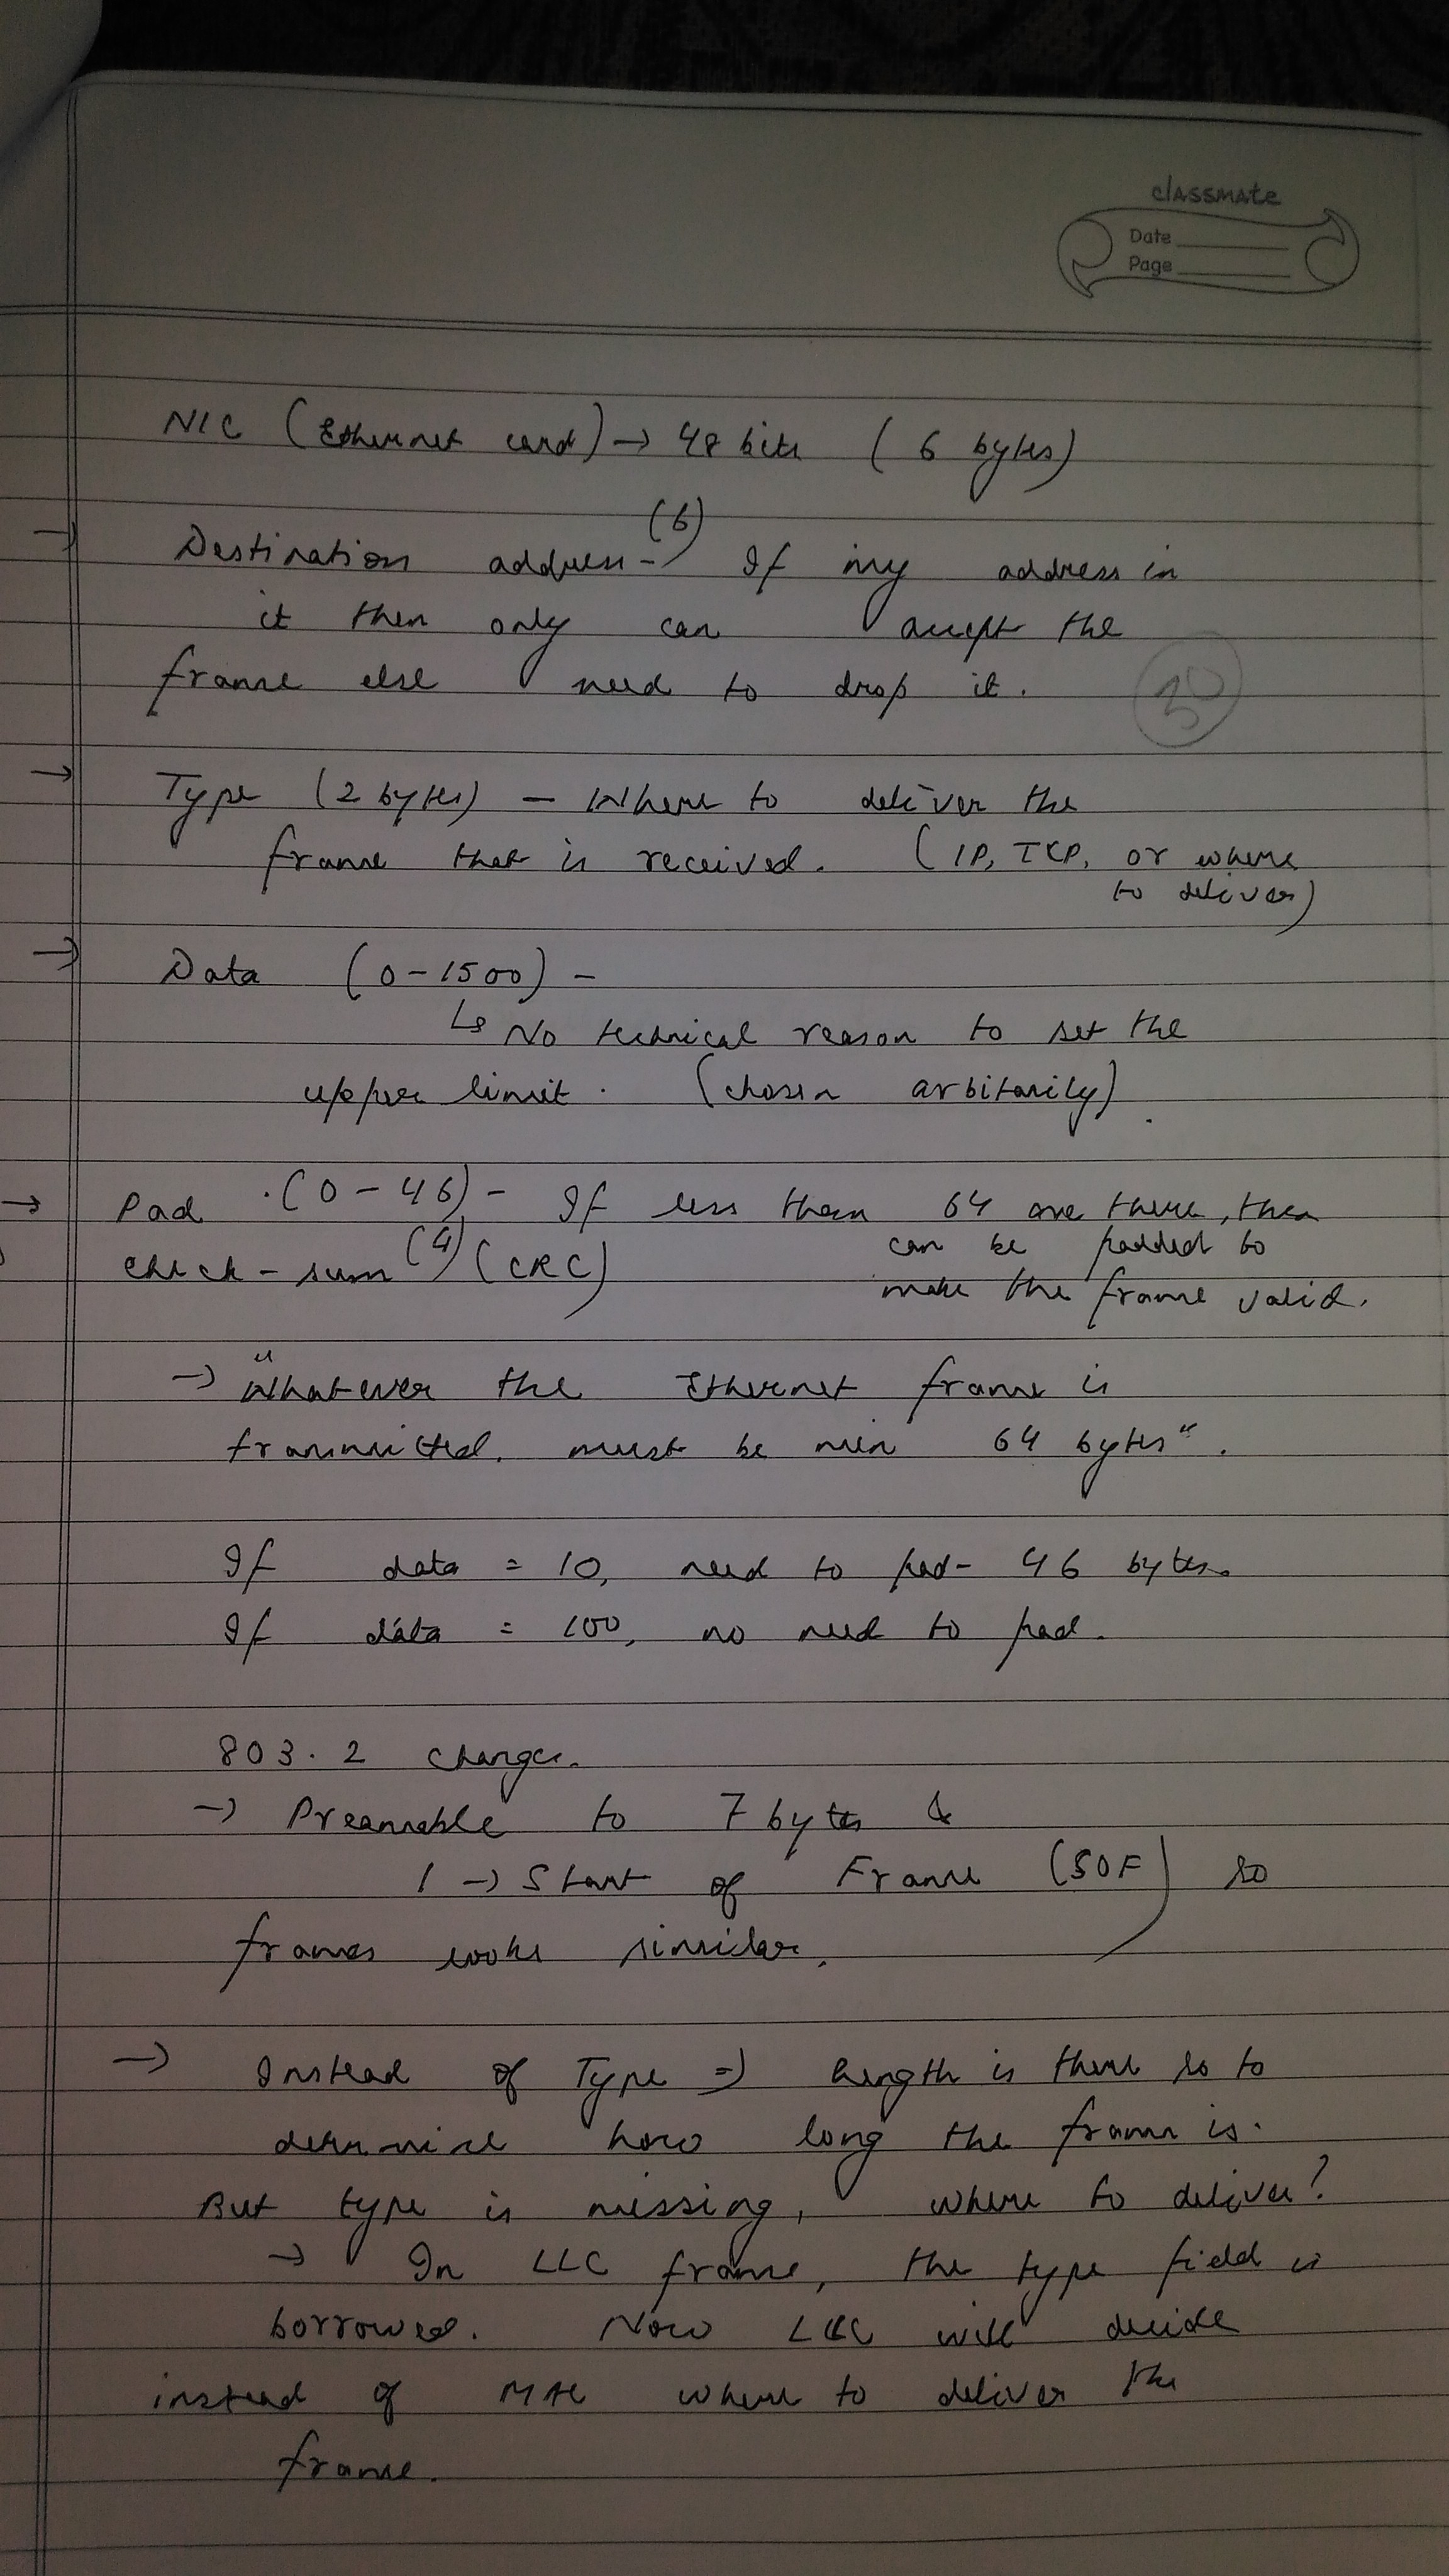 classmate
Date
Page
NIC (Ethernet card) → 48 bits (6 bytes)
→ Destination address - (6) If my address in
it then only can accept the
frame else need to drop it.
30
→ Type (2 bytes) - Where to deliver the
frame that is received. (IP, TCP, or where
to deliver)
→ Data (0-1500) -
↳ No technical reason to set the
upper limit. (chosen arbitarily)
→ Pad (0-46) - If less than 64 are there, then
can be padded to
make the frame valid.
check-sum (4) (CRC)
→ "Whatever the Ethernet frame is
transmitted, must be min 64 bytes".
If data = 10, need to pad - 46 bytes.
If data = 100, no need to pad.
803.2 changes.
→ Preamable to 7 bytes &
1 → Start of Frame (SOF) so
frames looks similar.
→ Instead of Type ⇒ length is there so to
determine how long the frame is.
But type is missing, where to deliver?
→ In LLC frame, the type field is
borrowed. Now LLC will decide
instead of MAC where to deliver the
frame.